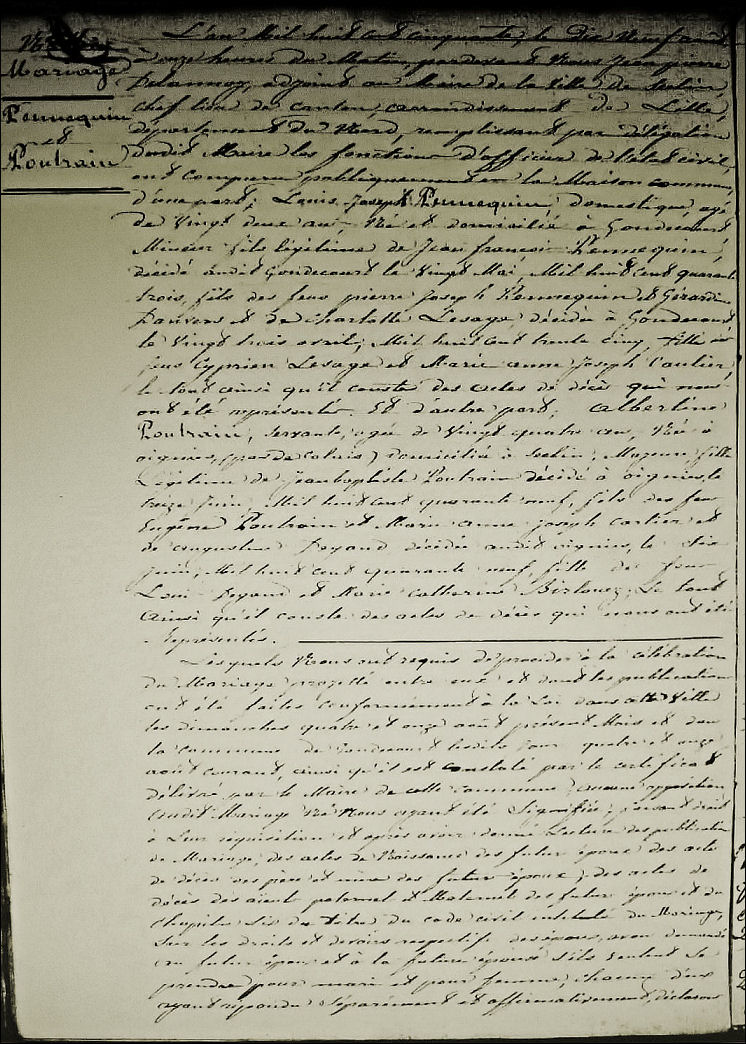 Mariage
Pennequin
et
Poutrain
L'an Mil huit cent cinquante, le Dix Neuf août
à onze heures du Matin, pardevant Nous Jean pierre
Delannoy, adjoint au Maire de la Ville de Seclin,
chef lieu de canton, arrondissement de Lille,
département du Nord, remplissant par délégation
dudit Maire les fonctions d'officier de l'état civil,
ont comparu publiquement en la Maison commune,
d'une part, Louis Joseph Pennequin domestique, agé
de Vingt deux ans, Né et domicilié à Gondecourt
Mineur fils légitime de Jean françois Pennequin,
décédé audit Gondecourt le Vingt Mai, Mil huit cent quarante
trois, fils des feus pierre Joseph Pennequin et Gérardine
Danvers et de Charlotte Lesage, décédée à Gondecourt
le Vingt trois avril, Mil huit cent trente cinq, fille des
feus Cyprien Lesage et Marie anne Joseph Coutier,
le tout ainsi qu'il conste des actes de décès qui nous
ont été représentés. Et d'autre part, Albertine
Poutrain, servante, agée de Vingt quatre ans, Née à
oignies, (pas de Calais) domiciliée à Seclin, Majeure, fille
Légitime de Jean baptiste Poutrain décédé à oignies, le
treize Juin, Mil huit cent quarante neuf, fils des feus
Eugène Poutrain et Marie anne Joseph Cartier et
de augustine Degand décédée audit oignies, le six
Juin, Mil huit cent quarante neuf, fille de feus
Louis Degand et Marie Catherine le tout
ainsi qu'il conste des actes de décès qui nous ont été
Représentés.
Lesquels Nous ont requis de procéder à la célébration
du Mariage projetté entre eux et dont les publications
ont été faites conformément à la Loi dans cette Ville
les dimanches quatre et onze août présent Mois et dans
la commune de Gondecourt lesdits Jours quatre et onze
août courant, ainsi qu'il est constaté par le certificat
délivré par le Maire de cette commune, aucune opposition
audit Mariage Ne Nous ayant été Signifiée, faisant droit
à Leur réquisition et après avoir donné Lecture des publications
de Mariage, des actes de Naissance des futurs époux des actes
de décès des père et mère des futurs époux, des actes de
décès des aïeuls paternel et Maternel des futurs époux et du
Chapitre Six du titre du code civil intitulé du Mariage,
Sur les droits et devoirs respectifs des époux, avons demandé
au futur époux et à la future épouse s'ils veulent se
prendre pour mari et pour femme, chacun d'eux
ayant répondu Séparément et affirmativement, déclarons